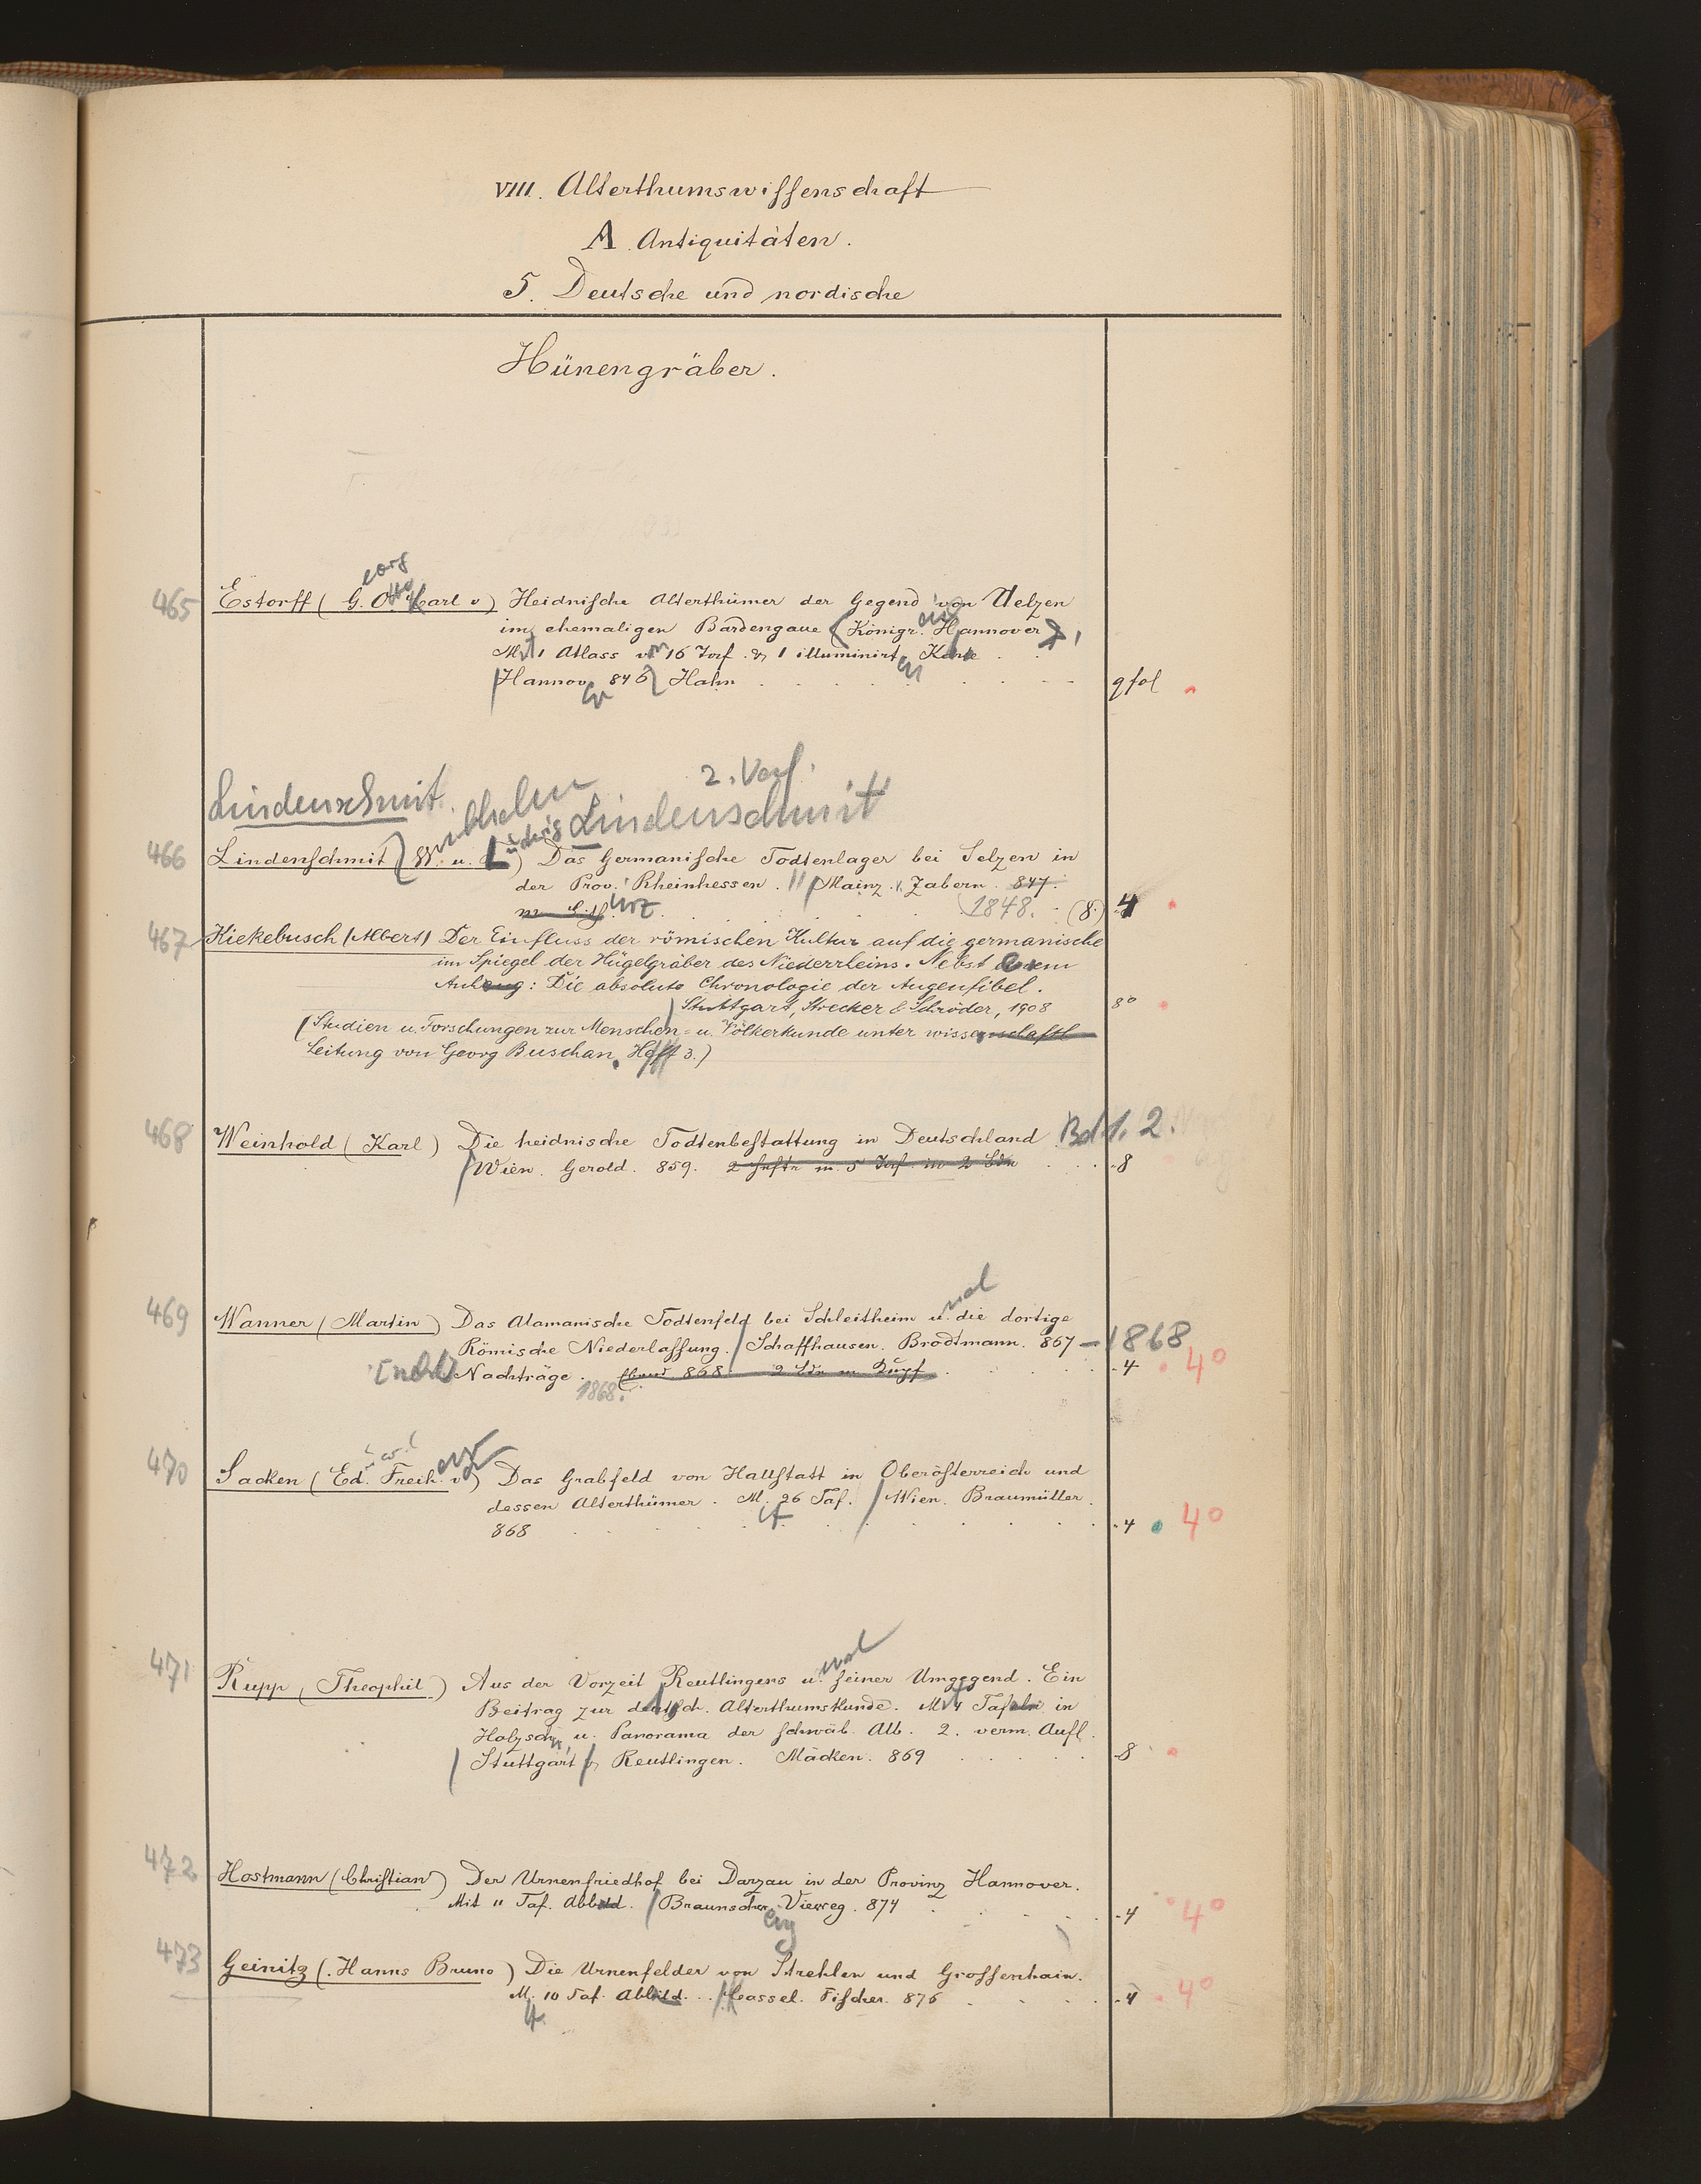 VIII. Alterthumswissenschaft
A. Antiquitäten.
5. Deutsche und nordische
Hünengräber.
eorg
465 Estorff (G. Otto Karl v) Heidnische Alterthümer der Gegend von Uelzen
im ehemaligen Bardengaue (Königr. Hannover).
Mit 1 Atlass von 16 Taf. & 1 illuminirten Karte
Hannover 846 Hahn gfol
2. Verf.
Lindenschmit. Wilhelm Ludwig Lindenschmit
466 Lindenschmit W. u. L) Das Germanische Todtenlager bei Selzen in
der Prov. Rheinhessen. Mainz. v. Zabern. 847.
1848. (8.) 4
467 Kiekebusch (Albert) Der Einfluss der römischen Kultur auf die germanische
im Spiegel der Hügelgräber des Niederrheins. Nebst einem
Anhang: Die absolute Chronologie der Augenfibel.
Stuttgart, Strecker & Schröder, 1908 8°
(Studien u. Forschungen zur Menschen- u. Völkerkunde unter wissenschaftl
Leitung von Georg Buschan. Heft 3.)
468 Weinhold (Karl) Die heidnische Todtenbestattung in Deutschland Bd 1. 2.
Wien. Gerold. 859. 2 Hefte m. 5 Taf in 2 Bdn 8
469 Wanner (Martin) Das Alamanische Todtenfeld bei Schleitheim u. die dortige
Römische Niederlassung. Schaffhausen. Brodtmann. 867 – 1868
[nebst] Nachträge. Ebend 868. 2 Bde m Kupf 4 4°
1868.
470 Sacken (Ed. Freih. v) Das Grabfeld von Hallstatt in Oberösterreich und
dessen Alterthümer. M. 26 Taf. Wien. Braumüller.
868 4 4°
471 Rupp, Theophil) Aus der Vorzeit Reutlingens u. seiner Umgegend. Ein
Beitrag zur deutsch. Alterthumskunde. Mit 4 Tafeln in
Holzschn. u. Panorama der schwäb. Alb. 2. verm. Aufl.
Stuttgart & Reutlingen. Mäcken. 869 8
472 Hostmann (Christian) Der Urnenfriedhof bei Darzau in der Provinz Hannover.
Mit 11 Taf. Abbild. Braunschweig Vieweg. 874 4 4°
473 Geinitz (Hanns Bruno) Die Urnenfelder von Strehlen und Grossenhain.
M. 10 Taf. Abbild. Cassel. Fischer. 876 4 4°